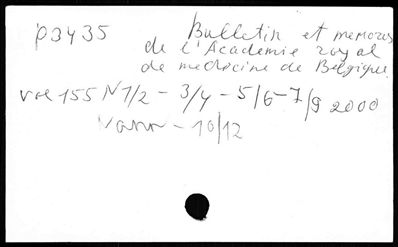 P3435 Bulletin et memores
de l'Academie royal
de medecine de Belgique
vol 155 N 1/2 - 3/4 - 5/6 - 7/9 2000
10/12